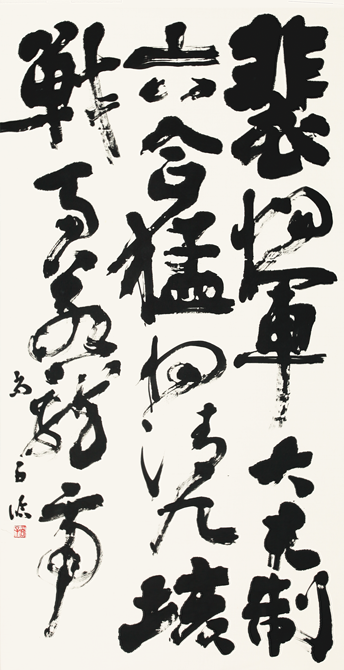 裴將軍大君制
六合猛將清九垓
戰馬若龍虎